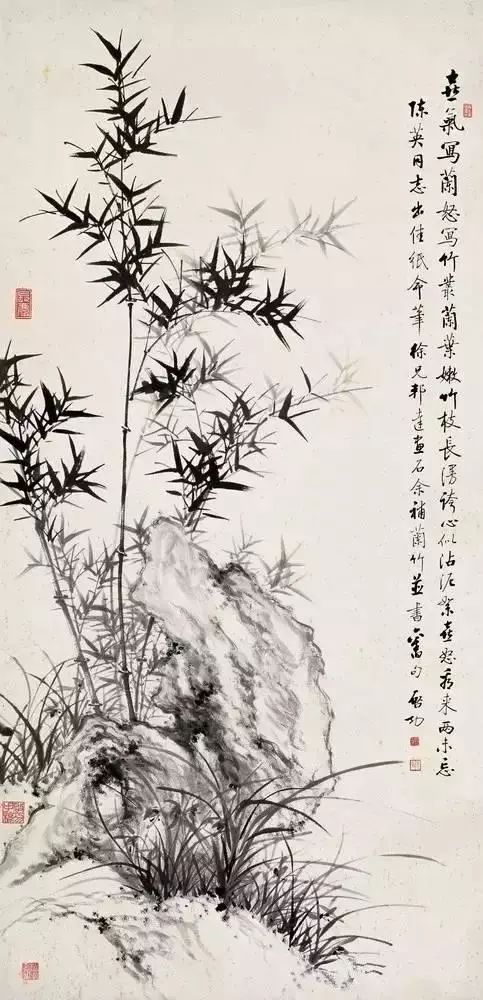 喜氣寫蘭怒寫竹叢蘭葉嫩竹枝長漫誇心似沾泥絮喜怒看来兩未忘
陳英同志出佳紙命筆徐兄邦達畫石余補蘭竹並書舊句 啓功